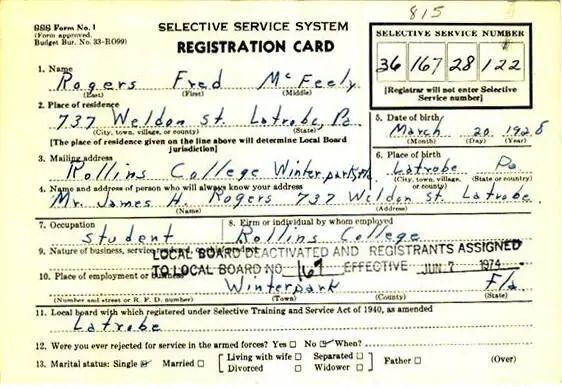 815
SSS Form No. 1
(Form approved.
Budget Bur. No. 33-R099)
SELECTIVE SERVICE SYSTEM
REGISTRATION CARD
SELECTIVE SERVICE NUMBER
36 167 28 122
[Registrar will not enter Selective
Service number]
1. Name
Rogers Fred McFeely
(Last) (First) (Middle)
2. Place of residence
737 Weldon St. Latrobe, Pa
(City, town, village, or county) (State)
[The place of residence given on the line above will determine Local Board
jurisdiction]
5. Date of birth
March 20 1928
(Month) (Day) (Year)
3. Mailing address
Rollins College Winterpark, Fla
6. Place of birth
Latrobe Pa
(City, town, village, (State or country)
or county)
4. Name and address of person who will always know your address
Mr. James H. Rogers 737 Weldon St. Latrobe
(Name) (Address)
7. Occupation
Student
8. Firm or individual by whom employed
Rollins College
9. Nature of business, service
LOCAL BOARD DEACTIVATED AND REGISTRANTS ASSIGNED
TO LOCAL BOARD NO. 167 EFFECTIVE JUN 7 1974
10. Place of employment or business
Winterpark Fla
(Number and street or R. F. D. number) (Town) (County) (State)
11. Local board with which registered under Selective Training and Service Act of 1940, as amended
Latrobe
12. Were you ever rejected for service in the armed forces? Yes ☐ No ☑ When?
13. Marital status: Single ☑ Married ☐ [ Living with wife ☐ Separated ☐ ] Father ☐ (Over)
Divorced ☐ Widower ☐